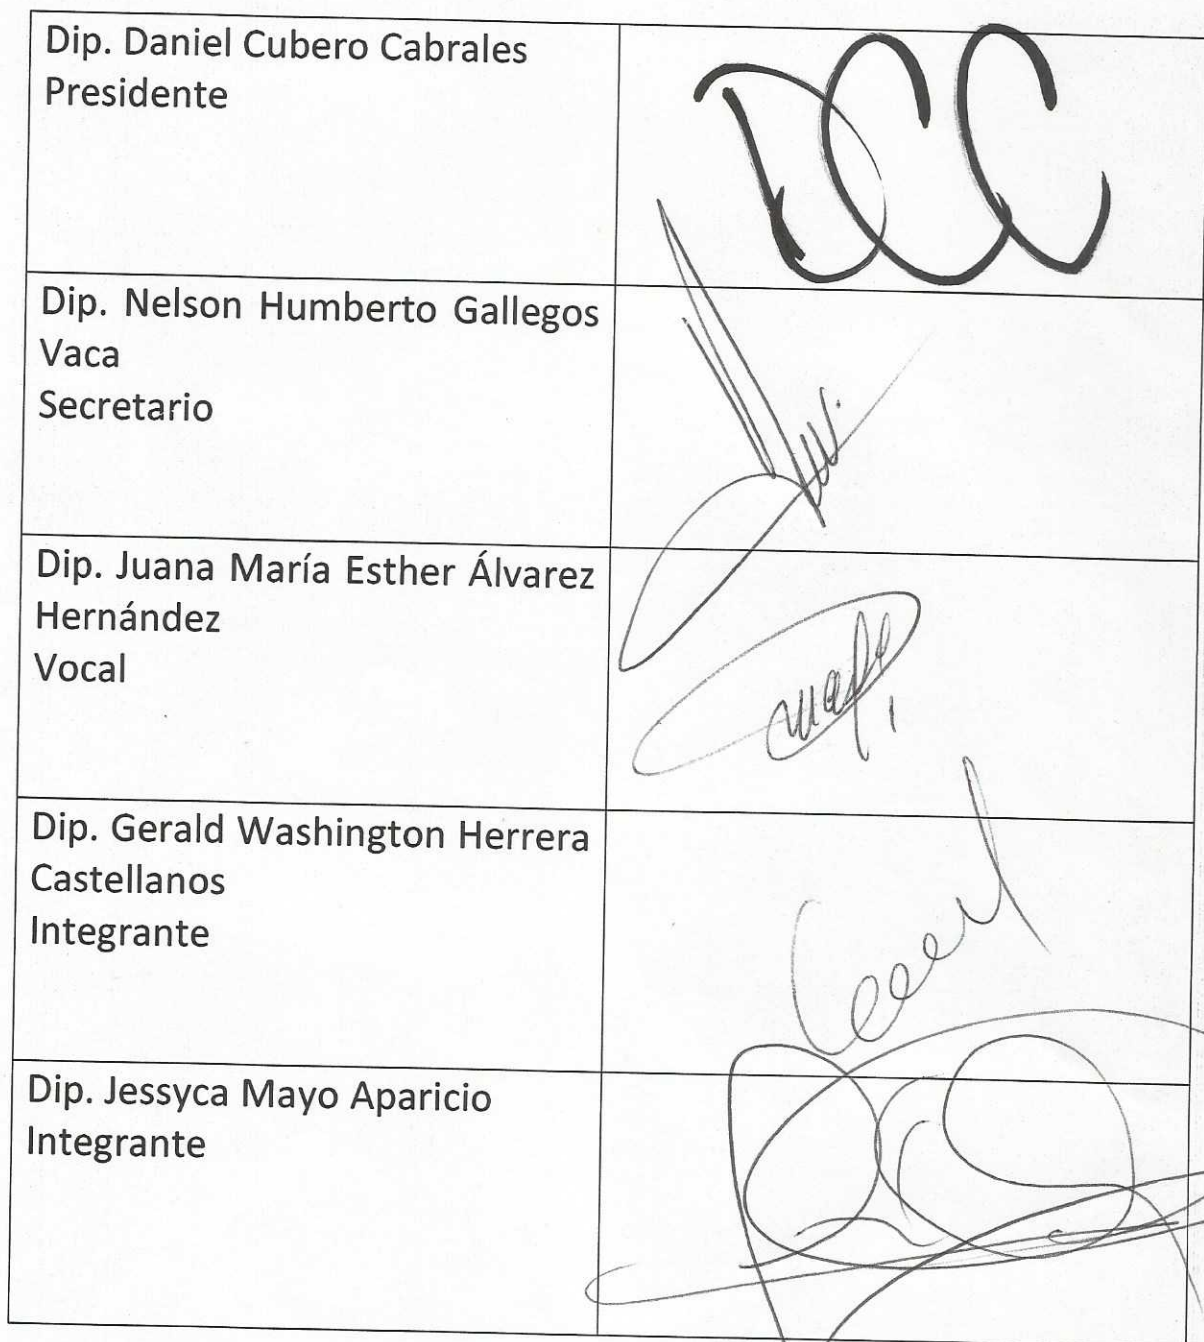 Dip. Daniel Cubero Cabrales
Presidente
DCC
Dip. Nelson Humberto Gallegos
Vaca
Secretario
Dip. Juana María Esther Álvarez
Hernández
Vocal
Dip. Gerald Washington Herrera
Castellanos
Integrante
Dip. Jessyca Mayo Aparicio
Integrante